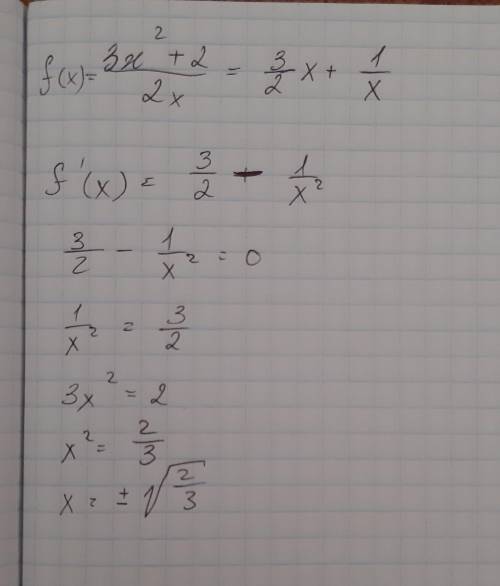 f(x) = (3x² + 2)/(2x) = 3/2 x + 1/x
f'(x) = 3/2 - 1/x²
3/2 - 1/x² = 0
1/x² = 3/2
3x² = 2
x² = 2/3
x = ± √(2/3)